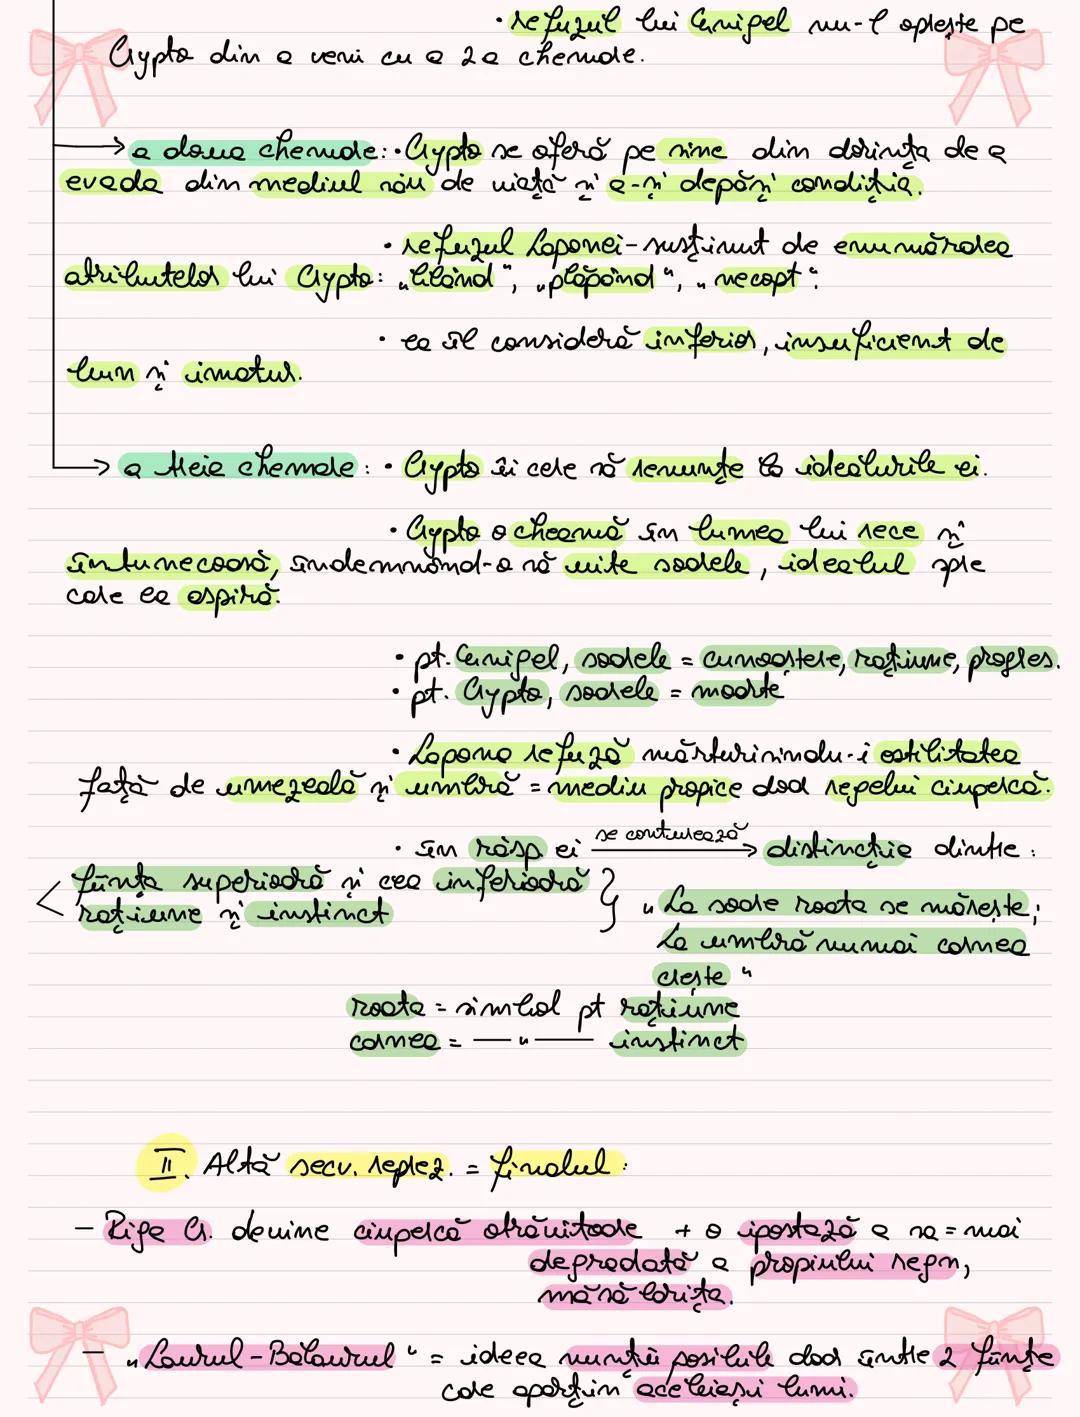 • refuzul lui Enigel nu-l oprește pe
Crypto din a veni cu a 2a chemare.
→ a doua chemare: • Crypto se oferă pe sine din dorința de a
evada din mediul său de viață și a-și depăși condiția.
• refuzul Laponei - susținut de enumărarea
atributelor lui Crypto: „blând", „plăpând", „necopt".
• ea îl consideră inferior, insuficient de
bun și imatur.
→ a treia chemare: • Crypto îi cere să renunțe la idealurile ei.
• Crypto o cheamă în lumea lui rece și
întunecoasă, îndemnând-o să uite soarele, idealul spre
care ea aspiră.
• pt. Enigel, soarele = cunoaștere, rațiune, progres.
• pt. Crypto, soarele = moarte
• Lapona refuză mărturisindu-i ostilitatea
față de umezeală și umbră = mediu propice doar regelui ciupercă.
• în răsp ei se conturează → distincția dintre:
< ființa superioară și cea inferioară }
rațiune și instinct
„La soare roata se mărește;
La umbră numai carnea
crește"
roata = simbol pt rațiune
carnea = — „ — instinct
II. Altă secv. reprez. = finalul:
- Riga C. devine ciupercă otrăvitoare + o ipostază a sa = mai
degradată a propriului regn,
măsălarița.
- „Laurul-Balaurul" = ideea nunții posibile doar între 2 ființe
care aparțin aceleiași lumi.